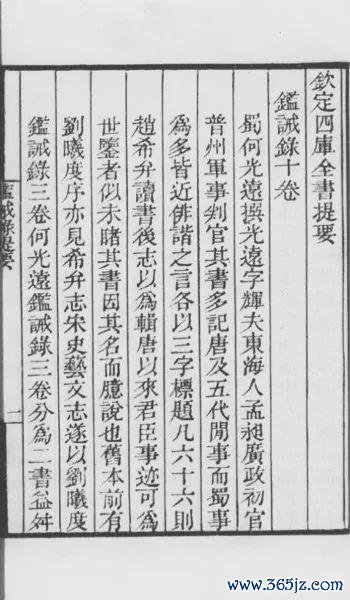 欽定四庫全書提要
鑑誡錄十卷
蜀何光遠撰光遠字輝夫東海人孟昶廣政初官
普州軍事判官其書多記唐及五代閒事而蜀事
為多皆近俳諧之言各以三字標題凡六十六則
趙希弁讀書後志以為輯唐以來君臣事迹可為
世鑒者似未睹其書因其名而臆說也舊本前有
劉曦度序亦見希弁志宋史藝文志遂以劉曦度
鑑誡錄三卷何光遠鑑誡錄三卷分為二書益舛
鑑誡錄提要
一
www.365jz.com